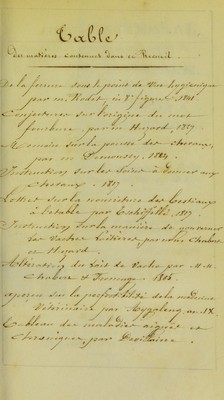 Table
Des matières contenues dans ce Recueil.
De la ferrure sous le point de Vue hygiénique
par m. Rodet in 8° figures. 1841
Conjectures sur l'origine du mot
fourbure, par m. Huzard. 1827.
Mémoire sur la pousse des chevaux,
par m. 1824
Instruction sur les soins à donner aux
chevaux. 1817.
Lettre sur la nourriture des Bestiaux
à l'étable par Tschiffeli, 1819.
Instruction sur la manière de gouverner
les Vaches laitières par Chabert
et Huzard.
Altération du lait de Vache par M. M.
Chabert et Fromage. 1805.
sur la perfectibilité de la médecine
Vétérinaire par Aygaleng, an IX
Tableau des maladies aiguës et
chroniques, par Devillaine.